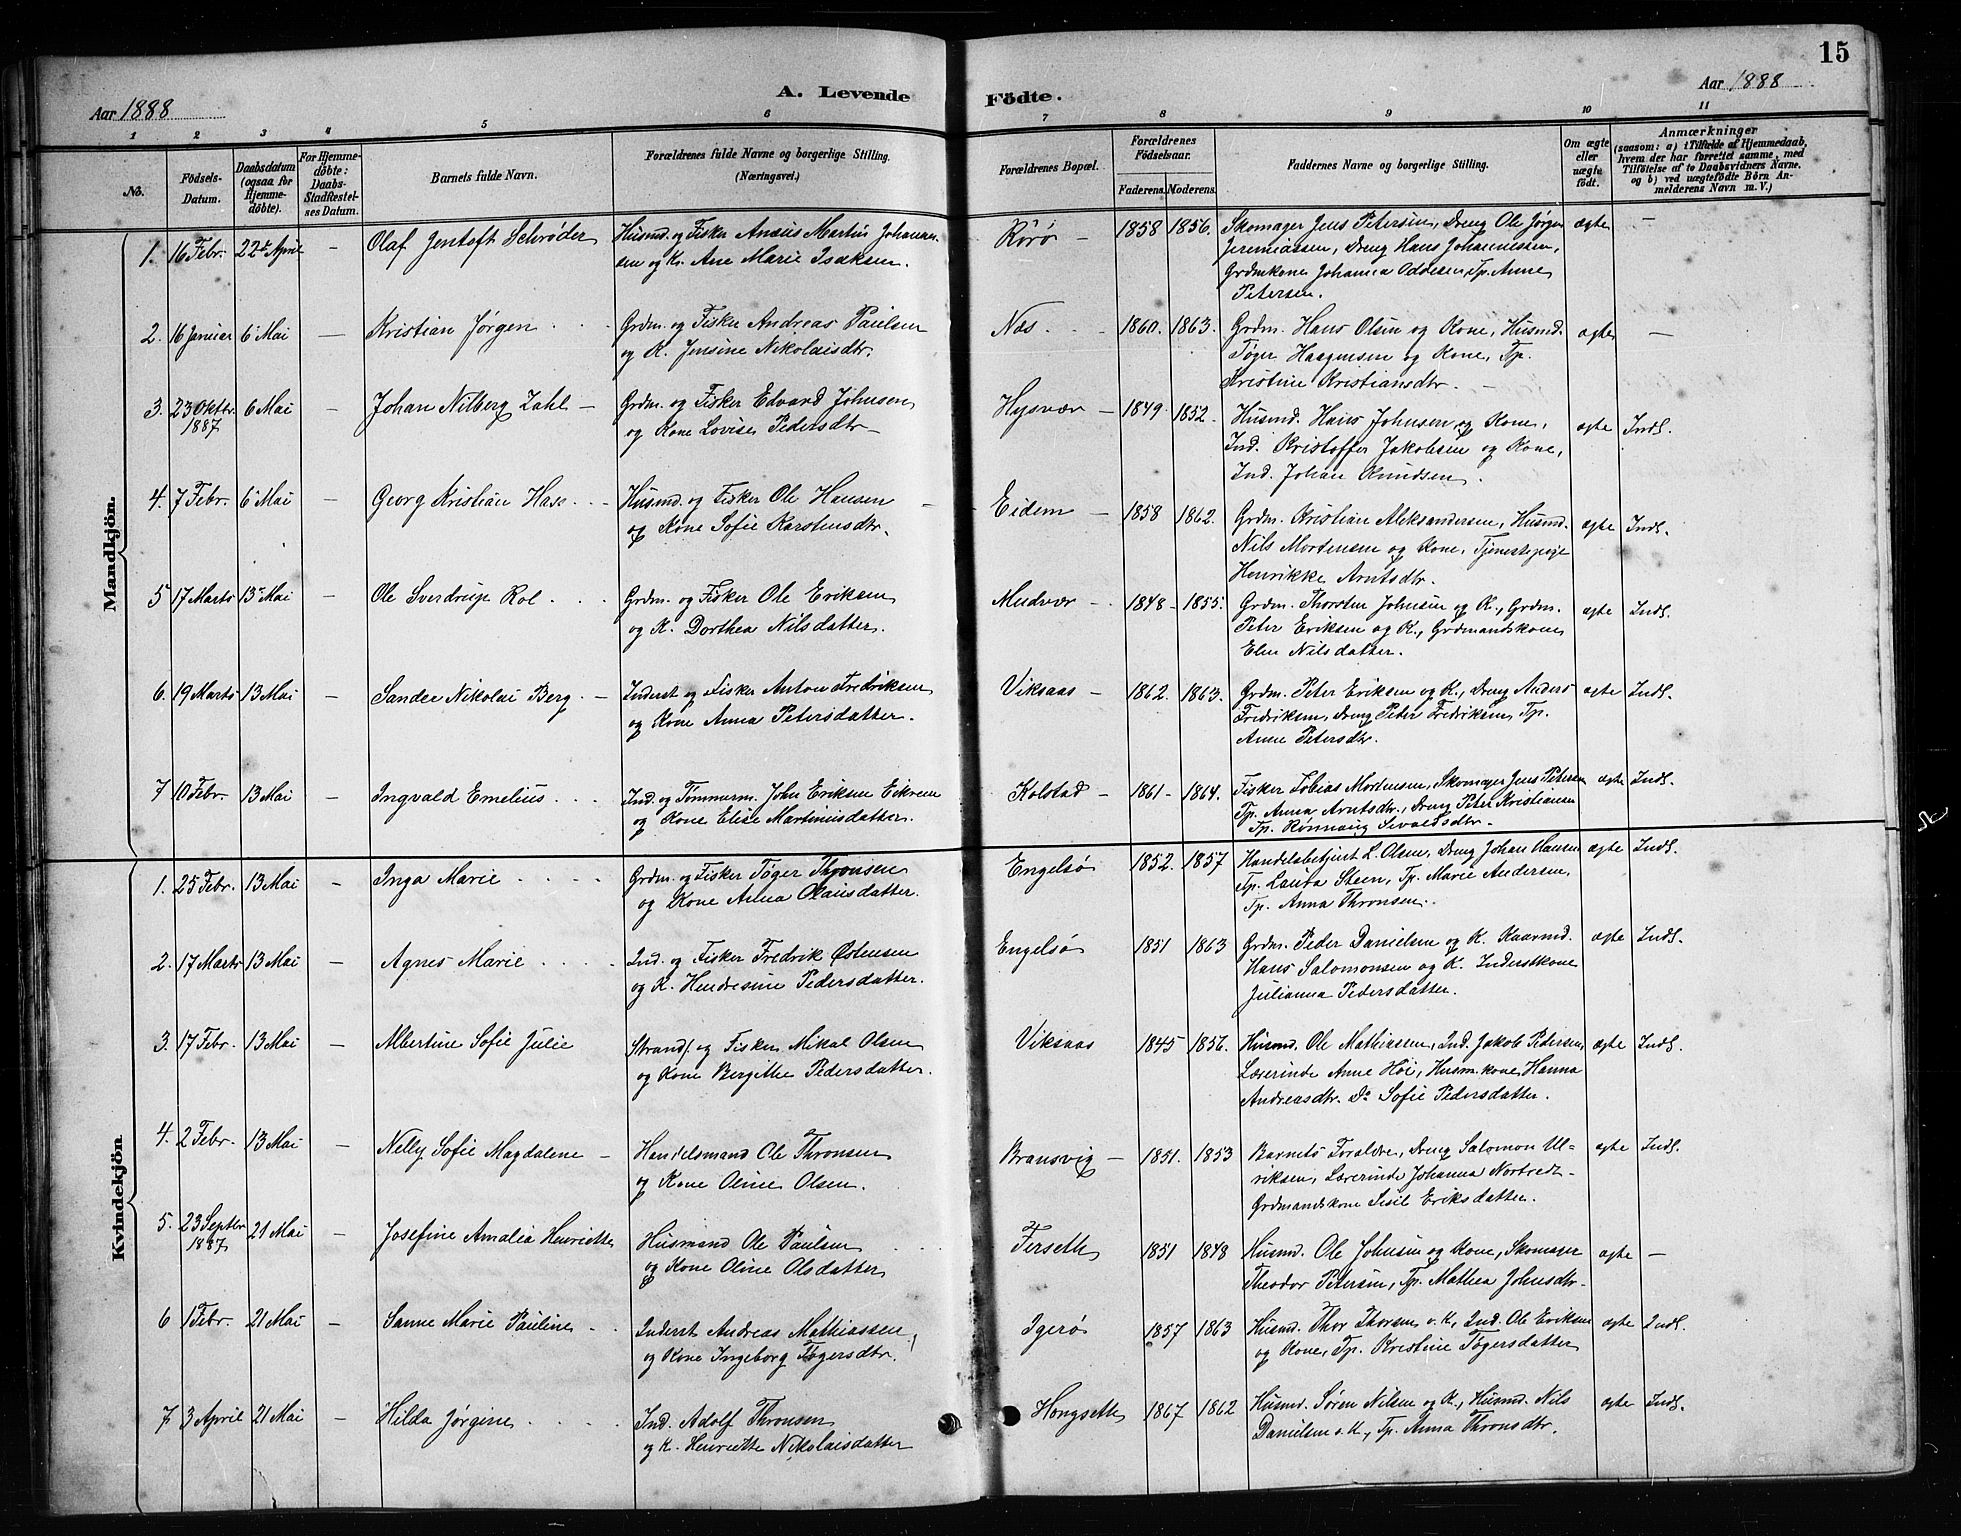 15
Aar 1888
A. Levende
Födte.
Aar 1888
1 2 3 4 5 6 7 8 9 10 11
No.
Födsels-
Datum.
Daabsdatum
(ogsaa for
Hjemme-
döbte).
For Hjemme-
döbte:
Daabs-
Stadfæstel-
ses Datum.
Barnets fulde Navn.
Forældrenes fulde Navne og borgerlige Stilling.
(Næringsvei.)
Forældrenes Bopæl.
Forældrenes
Födselsaar.
Faderens. Moderens.
Faddernes Navne og borgerlige Stilling.
Om ægte
eller
uægte
födt.
Anmærkninger
(saasom: a) i Tilfælde af Hjemmedaab,
hvem der har forrettet samme, med
Tilföielse af to Daabsvidners Navne.
og b) ved uægtefödte Börn An-
melderens Navn m. V.)
Mandkjön.
1. 16 Febr. 22de April — Olaf Jentoft Schrøder
Husmd. og Fisker Anæus Martin Johannes-
sen og K. Ane Marie Isaksen.
Rörö — 1858 1856.
Skomager Jens Petersen, Dreng Ole Jørgen
Jeremiassen, Dreng Hans Johannessen,
Grdmkone Johanna Oddesen, Tp. Anne
Petersen.
ægte —
2. 16 Januar 6 Mai — Kristian Jørgen
Grdm. og Fisker Andreas Paulsen
og K. Jensine Nikolaisdtr.
Næs 1860. 1863.
Grdm. Hans Olsen og Kone, Husmd.
Tøger Haagensen og Kone, Tp.
Kristine Kristiansdtr. —
ægte —
3. 23 Oktbr. 1887 6 Mai — Johan Nilberg Zahl —
Grdm. og Fisker Edvard Johnsen
og Kone Lovise Pedersdtr —
Hysvær — 1849 1852.
Husmd. Hans Johnsen og Kone,
Ind. Kristoffer Jakobsen og Kone,
Ind. Johan Knudsen.
ægte Indl.
4. 7 Febr. 6 Mai — Georg Kristian Hass
Husmd. og Fisker Ole Hansen
og Kone Sofie Karstensdtr.
Eidem — 1858 1862.
Grdm. Kristian Aleksandersen, Husmd.
Nils Mortensen og Kone, Tjenestepige
Henrikke Arntsdtr.
ægte Indl.
5 17 Marts 13 Mai — Ole Sverdrup Rol
Grdm. og Fisker Ole Eriksen
og K. Dorthea Nilsdatter.
Mudvær — 1848 - 1855.
Grdm. Thorsten Johnsen og K., Grdm.
Peter Eriksen og K., Grdmandskone
Elen Nilsdatter.
ægte Indl.
6. 19 Marts 13 Mai — Sander Nikolai Berg —
Inderst og Fisker Anton Fredriksen
og Kone Anna Petersdatter.
Viksaas — 1862. 1863.
Grdm. Peter Eriksen og K., Dreng Anders
Fredriksen, Dreng Peter Fredriksen, Tp.
Anne Petersdtr.
ægte Indl.
7 10 Febr. 13 Mai — Ingvald Emelius
Ind. og Tömmerm. John Eriksen Eikrem
og Kone Elise Martinusdatter.
Kolstad — 1861 - 1864.
Fisker Tobias Mortensen, Skomager Jens Petersen
Tp. Anna Arntsdtr., Dreng Peter Kristiansen
Tp. Rönnaug Sivaldsdtr.
ægte Indl.
Kvindekjön.
1. 25 Febr. 13 Mai — Inga Marie
Grdm. og Fisker Tøger Thronsen
og Kone Anna Olausdatter.
Engelsö 1852. 1857
Handelsbetjent L. Olsen, Dreng Johan Hansen
Tp. Laura Steen, Tp. Marie Andersen,
Tp. Anna Thronsen.
ægte Indl.
2. 17 Marts 13 Mai — Agnes Marie
Ind. og Fisker Fredrik Østensen
og K. Hendresine Pedersdatter.
Engelsö 1851 1863
Grdm. Peder Danielsen og K. Kaarmd.
Hans Salomonsen og K. Inderstkone
Julianna Pedersdatter.
ægte Indl.
3. 17 Febr. 13 Mai — Albertine Sofie Julie
Strands. og Fisker Mikal Olsen
og Kone Bergitte Pedersdatter.
Viksaas 1845 1856.
Husmd. Ole Mathiassen, Ind. Jakob Pedersen,
Lærerinde Anne Höi, Husm.kone Hanna
Andreasdtr. Do Sofie Pedersdatter.
ægte Indl.
4. 2 Febr. 13 Mai — Nelly Sofie Magdalene —
Handelsmand Ole Thronsen
og Kone Oline Olsen.
Bransvig — 1851. 1853
Barnets Forældre, Dreng Salomon Ul-
riksen, Lærerinde Johanna Nortvedt-
Grdmandskone Sisil Eriksdatter.
ægte Indl.
5. 23 Septbr 1887 21 Mai — Josefine Amalia Henriette
Husmand Ole Paulsen
og Kone Oline Olsdatter
Ferseth 1851 1848
Husmd. Ole Johnsen og Kone, Skomager
Theodor Petersen, Tp. Mathea Johnsdtr-
ægte —
6 1 Febr. 21 Mai — Sanne Marie Pauline
Inderst Andreas Mathiassen,
og Kone Ingeborg Tøgersdtr.
Igerö 1857 1863
Husmd. Thor Thorsen o. K., Ind. Ole Eriksen
og Kone, Tp. Kristine Tøgersdatter
ægte Indl.
7 3 April 21 Mai — Hilda Jørgine
Ind. Adolf Thronsen
og K. Henriette Nikolaisdatter
Hongseth 1867 1862
Husmd. Sören Nilsen og K., Husmd. Nils
Danielsen o. K., Tp. Anna Thronsdtr.
ægte Indl.